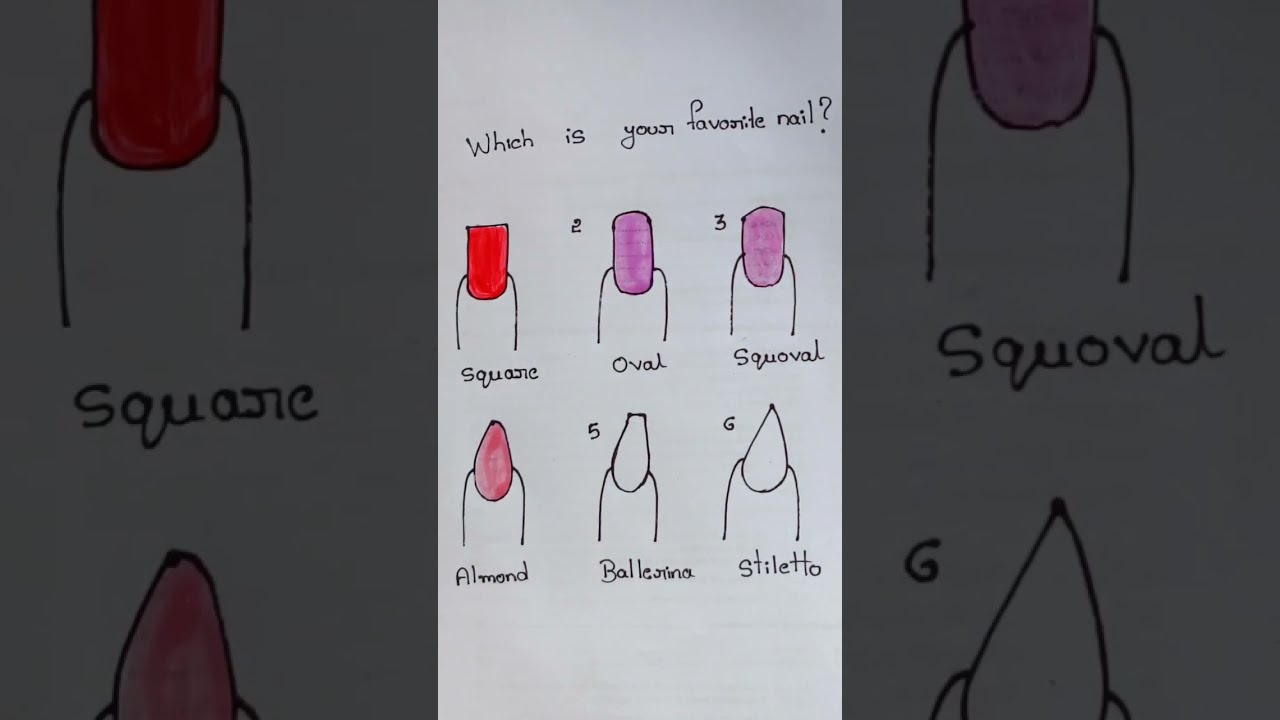 Which is your favorite nail?
2 3
Square Oval Squoval
5 6
Almond Ballerina Stiletto
Square
Squoval
6